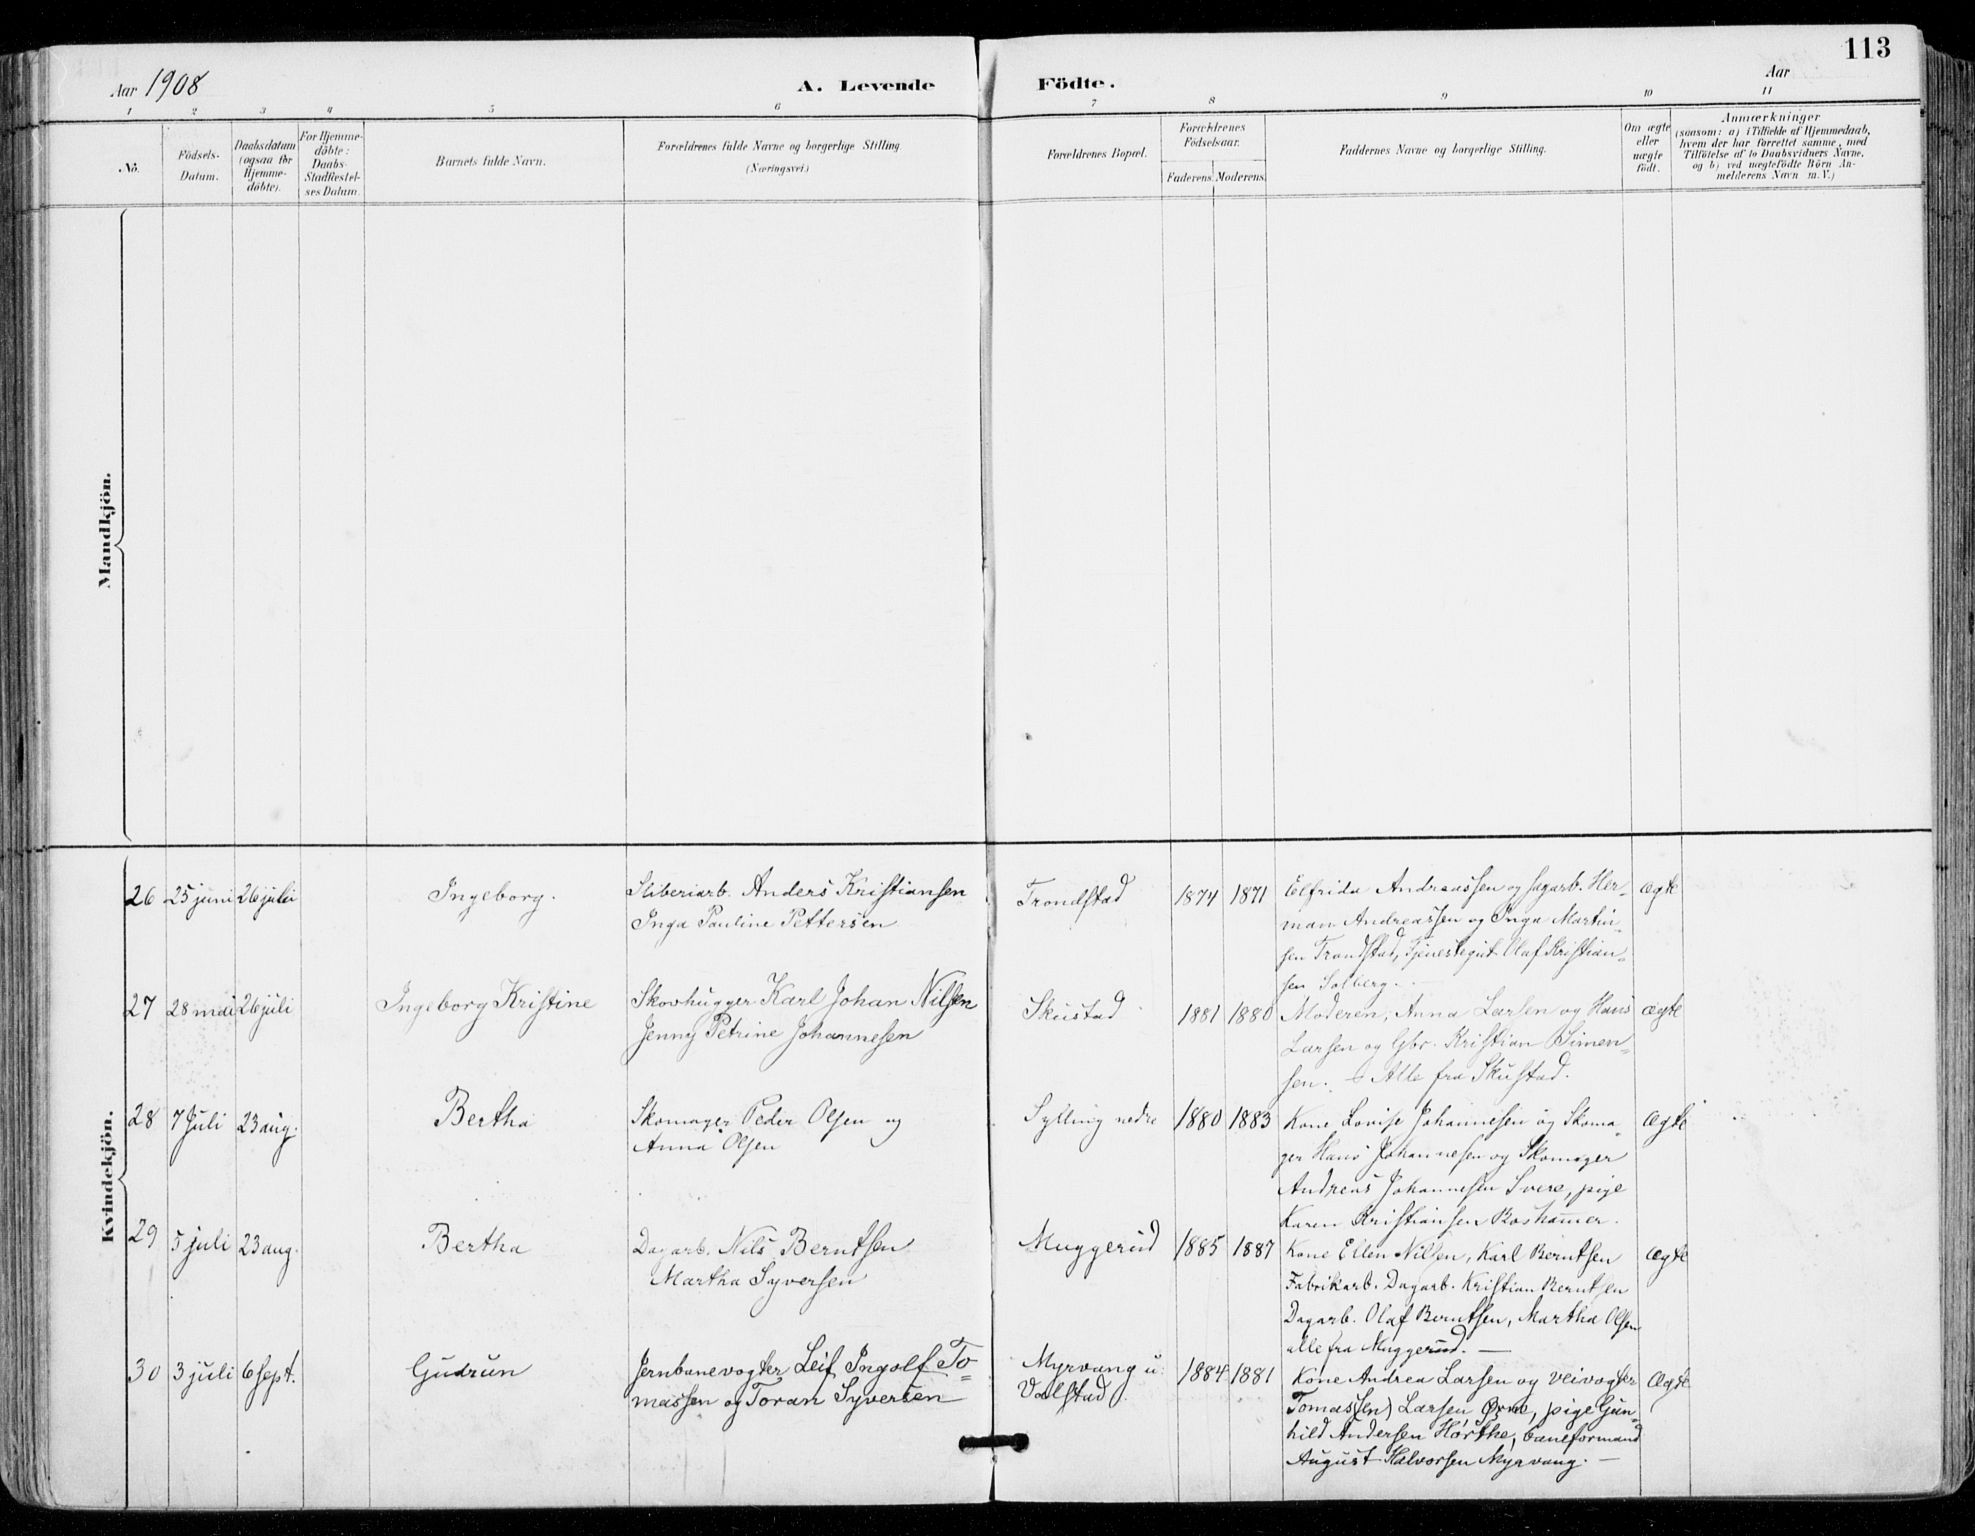 113
Aar 1908
A. Levende
Födte.
Aar
1 2 3 4 5 6 7 8 9 10 11
No.
Födsels-
Datum.
Daabsdatum
(ogsaa for
Hjemme-
döbte).
For Hjemme-
döbte:
Daabs-
Stadfæstel-
ses Datum.
Barnets fulde Navn.
Forældrenes fulde Navne og borgerlige Stilling
(Næringsvei.)
Forældrenes Bopæl.
Forældrenes
Födselsaar.
Faderens. Moderens.
Faddernes Navne og borgerlige Stilling.
Om ægte
eller
uægte
födt.
Anmærkninger
(saasom: a) i Tilfælde af Hjemmedaab,
hvem der har forrettet samme, med
Tilföielse af to Daabsvidners Navne,
og b) ved uegtefödte Börn An-
melderens Navn m. V.)
Mandkjön.
Kvindekjön.
26 25 juni 26 juli
Ingeborg.
Sliberiarb. Anders Kristiansen
Inga Pauline Pettersen
Trondstad
1874 1871
Elfrida Andreassen og sagarb. Her-
man Andreassen og Inga Martin-
sen Trondstad, Tjenestegut Olaf Kristian-
sen Solberg.
ægte
27 28 mai 26 juli
Ingeborg Kristine
Skovhugger Karl Johan Nilsen
Jenny Petrine Johannesen
Skustad
1881 1880
Moderen, Anna Larsen og Hans
Larsen og Gbr. Kristian Simen-
sen. Alle fra Skustad.
ægte
28 7 Juli 23 aug.
Bertha
Skomager Peder Olsen og
Anna Olsen
Sylling nedre
1880 1883
Kone Lovise Johannesen og Skoma-
ger Hans Johannesen og Skomager
Andreas Johannesen Svere, pige
Karen Kristiansen Roshamer.
ægte
29 5 juli 23 aug.
Bertha
Dagarb. Nils Berntsen
Martha Syversen
Muggerud
1885 1887
Kone Ellen Nilsen, Karl Berntsen
Fabrikarb. Dagarb. Kristian Berntsen
Dagarb. Olaf Berntsen, Martha Olsen
alle fra Muggerud.
ægte
30 3 juli 6 sept.
Gudrun
Jernbanevogter Leif Ingolf To=
massen og Toran Syversen
Myrvang u.
Valstad.
1884 1881
Kone Andrea Larsen og veivogter
Tomas(sen) Larsen Ørne, pige Gun-
hild Andersen Hørthe, baneformand
August Halvorsen Myrvang.
Ægte